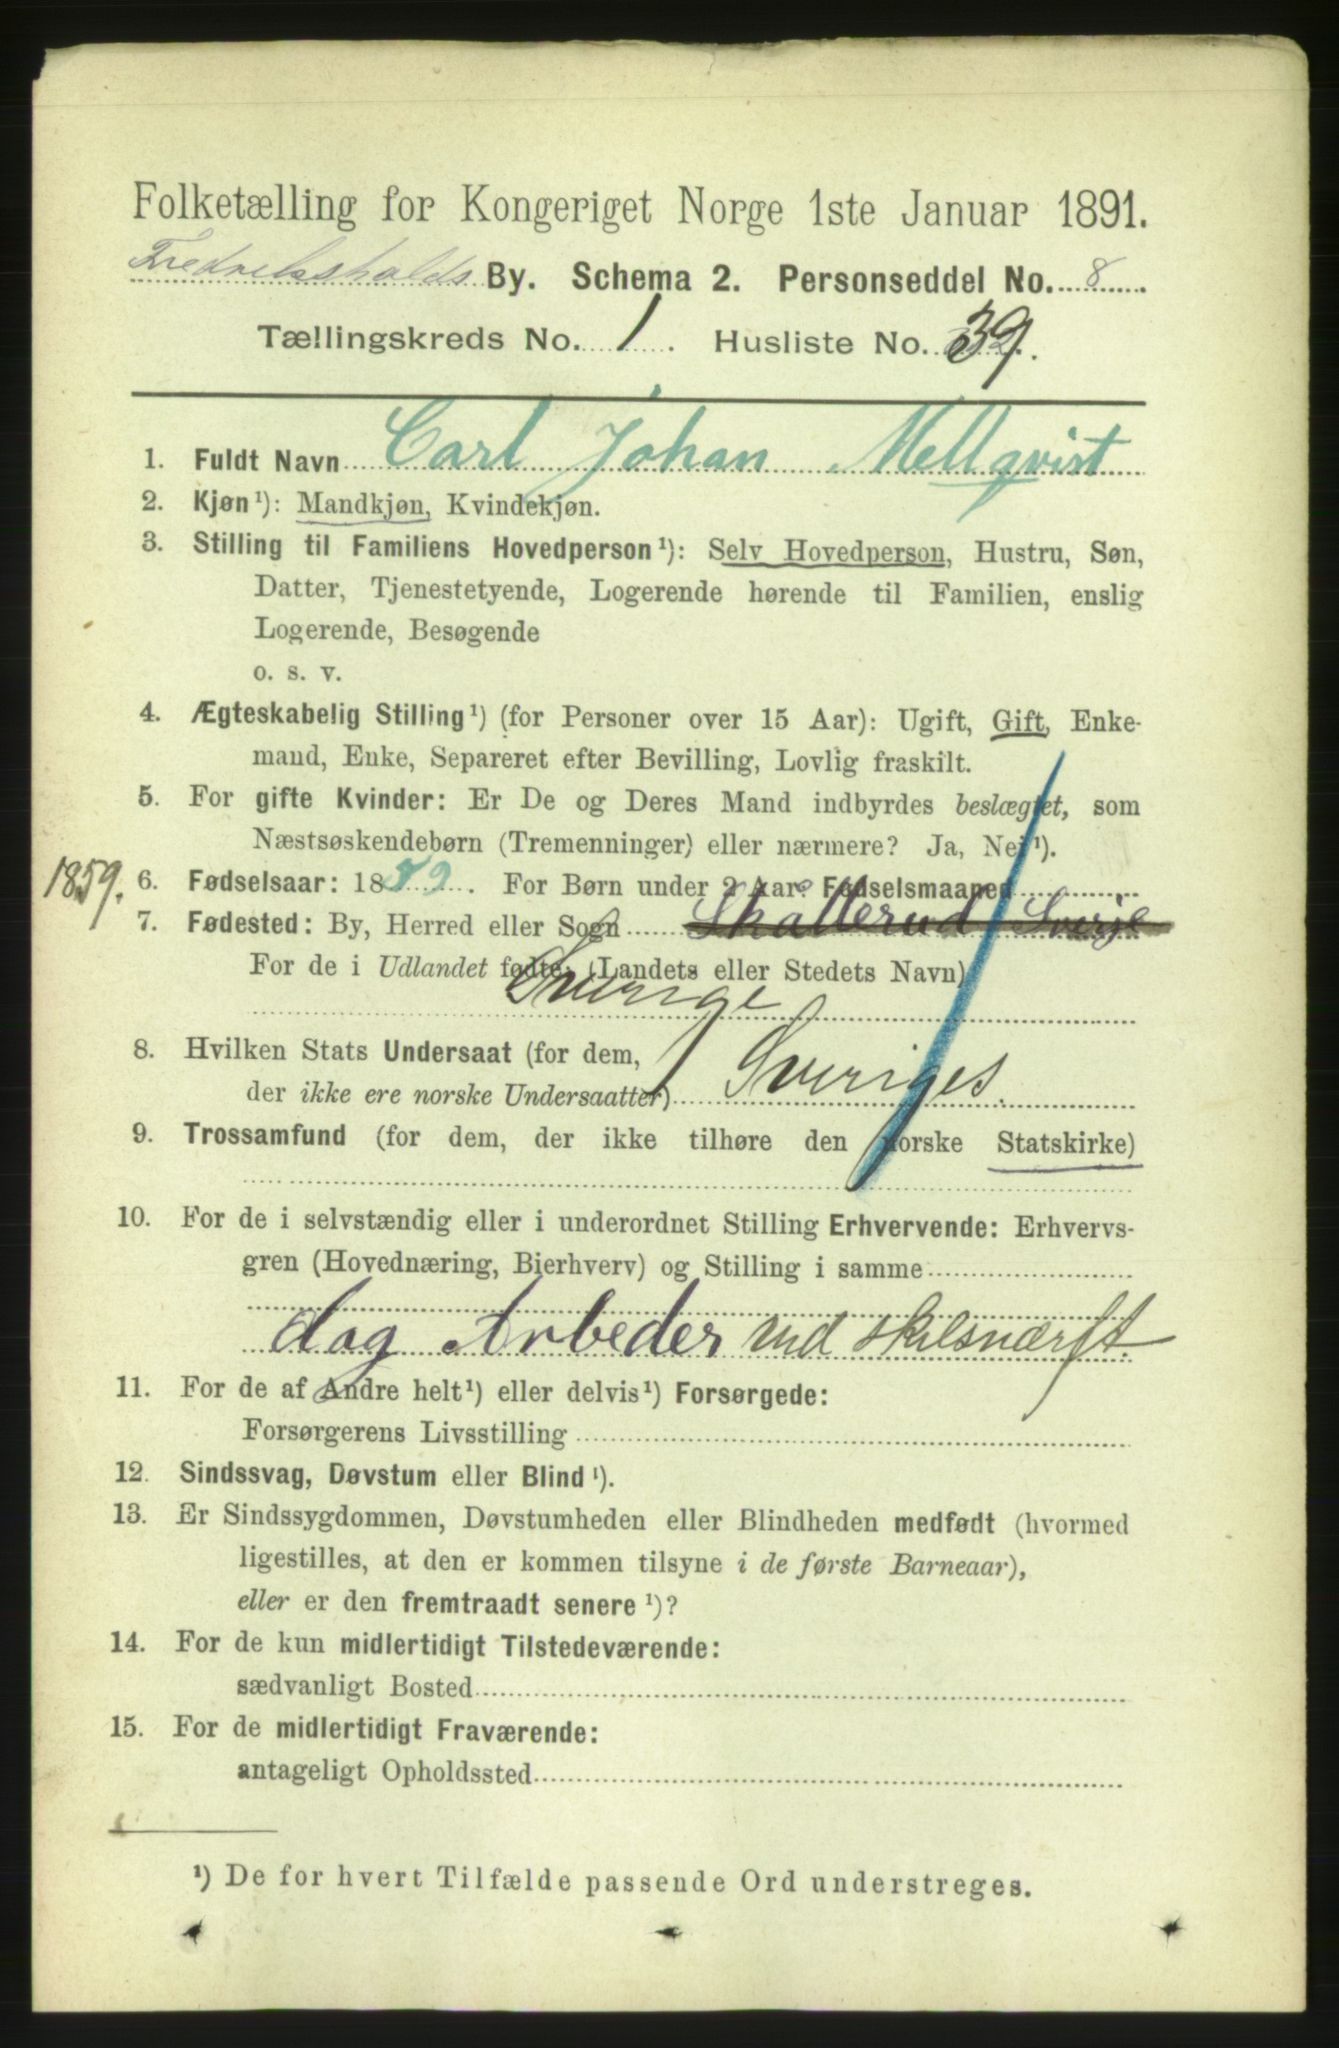 Folketælling for Kongeriget Norge 1ste Januar 1891.
Fredrikshalds By. Schema 2. Personseddel No. 8
Tællingskreds No. 1. Husliste No. 39.
1. Fuldt Navn Carl Johan Mellqvist
2. Kjøn¹): Mandkjøn, Kvindekjøn.
3. Stilling til Familiens Hovedperson¹): Selv Hovedperson, Hustru, Søn,
Datter, Tjenestetyende, Logerende hørende til Familien, enslig
Logerende, Besøgende
o. s. v.
4. Ægteskabelig Stilling¹) (for Personer over 15 Aar): Ugift, Gift, Enke-
mand, Enke, Separeret efter Bevilling, Lovlig fraskilt.
5. For gifte Kvinder: Er De og Deres Mand indbyrdes beslægtet, som
Næstsøskendebørn (Tremenninger) eller nærmere? Ja, Nei¹).
1859. 6. Fødselsaar: 1859. For Børn under 2 Aar: Fødselsmaaned
7. Fødested: By, Herred eller Sogn Skallerud Sverje
For de i Udlandet fødte: (Landets eller Stedets Navn)
Sverige
8. Hvilken Stats Undersaat (for dem,
der ikke ere norske Undersaatter) Sveriges.
9. Trossamfund (for dem, der ikke tilhøre den norske Statskirke)
10. For de i selvstændig eller i underordnet Stilling Erhvervende: Erhvervs-
gren (Hovednæring, Bierhverv) og Stilling i samme
dag Arbeder ved
11. For de af Andre helt¹) eller delvis¹) Forsørgede:
Forsørgerens Livsstilling
12. Sindssvag, Døvstum eller Blind¹).
13. Er Sindssygdommen, Døvstumheden eller Blindheden medfødt (hvormed
ligestilles, at den er kommen tilsyne i de første Barneaar),
eller er den fremtraadt senere¹)?
14. For de kun midlertidigt Tilstedeværende:
sædvanligt Bosted
15. For de midlertidigt Fraværende:
antageligt Opholdssted
¹) De for hvert Tilfælde passende Ord understreges.